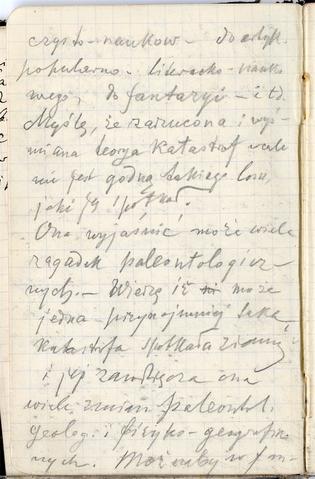 czysto-naukow – do artyk.
popularno- literacko-nauko
wego, do fantazyi – i t.d.
Myślę, że zarzucona i wyś-
miana teorya Katastrof wcale
nie jest godną takiego losu,
jaki ją spotkał.
Ona wyjaśnić może wiele
zagadek paleontologicz-
nych. – Wierzę iż może
jedna przynajmniej taka
Katastrofa spotkała ziemię
i jej zawdzięcza ona
wiele zmian paleontol.
geolog. i fizyko-geograficz
nych. Możnaby w